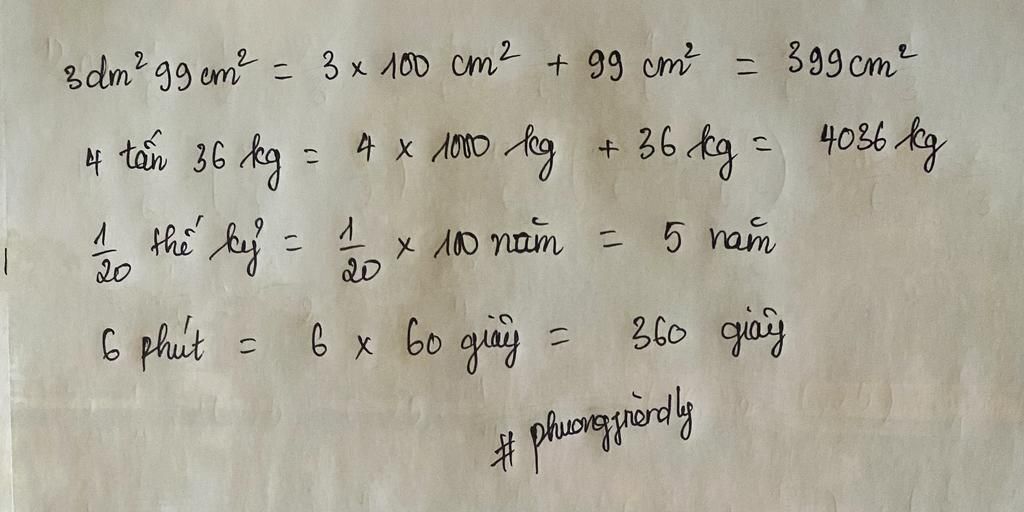 3dm² 99cm² = 3 × 100 cm² + 99 cm² = 399cm²
4 tấn 36 kg = 4 × 1000 kg + 36 kg = 4036 kg
1/20 thế kỷ = 1/20 × 100 năm = 5 năm
6 phút = 6 × 60 giây = 360 giây
# phuongfriendly